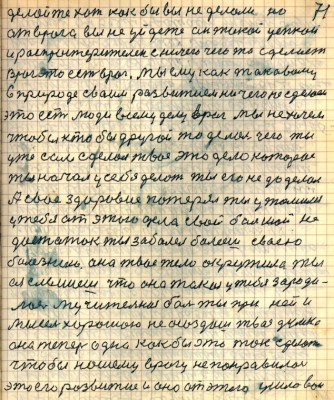 71
делойте хот как бы вы не делали но
от врага вы не уйдете он такой цепкий
и распотерителен с ничего чего то сделает
Враг это есть враг, мы ему как таковому
в природе своим развитием ничего не сделаем
это есть люди всему делу враг мы не хочем
чтобы кто бы другой то делал чего ты
уже сам сделал твое это дело которое
ты начал у себя делот ты его не до делал
А свое здоровие потерял ты
у тебя от этого дела свой болшой не
достаток ты заболел болеш своею
болезнею, она твое тело окружила ты
слышеш что она такая у тебя зароди-
лас мучителная бол ты при ней и
мысел хорошою не создаш твая думка
она тепер одна как бы это так сделат
чтобы нашому врагу не понравилос
это его развитие и оно от этого ушло вон